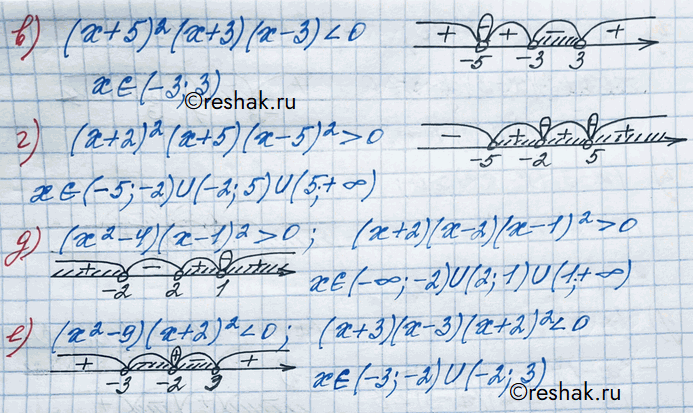 в) (x+5)²(x+3)(x-3)<0
+ − + − +
-5 -3 3
x∈(-3; 3)
©reshak.ru
г) (x+2)²(x+5)(x-5)²>0
− + − + − +
-5 -2 5
x∈(-5;-2)∪(-2;5)∪(5;+∞)
д) (x²-4)(x-1)²>0; (x+2)(x-2)(x-1)²>0
+ − + − +
-2 2 1
x∈(-∞;-2)∪(2;1)∪(1;+∞)
е) (x²-9)(x+2)²<0; (x+3)(x-3)(x+2)²<0
+ − + − +
-3 -2 3
x∈(-3;-2)∪(-2; 3)
©reshak.ru